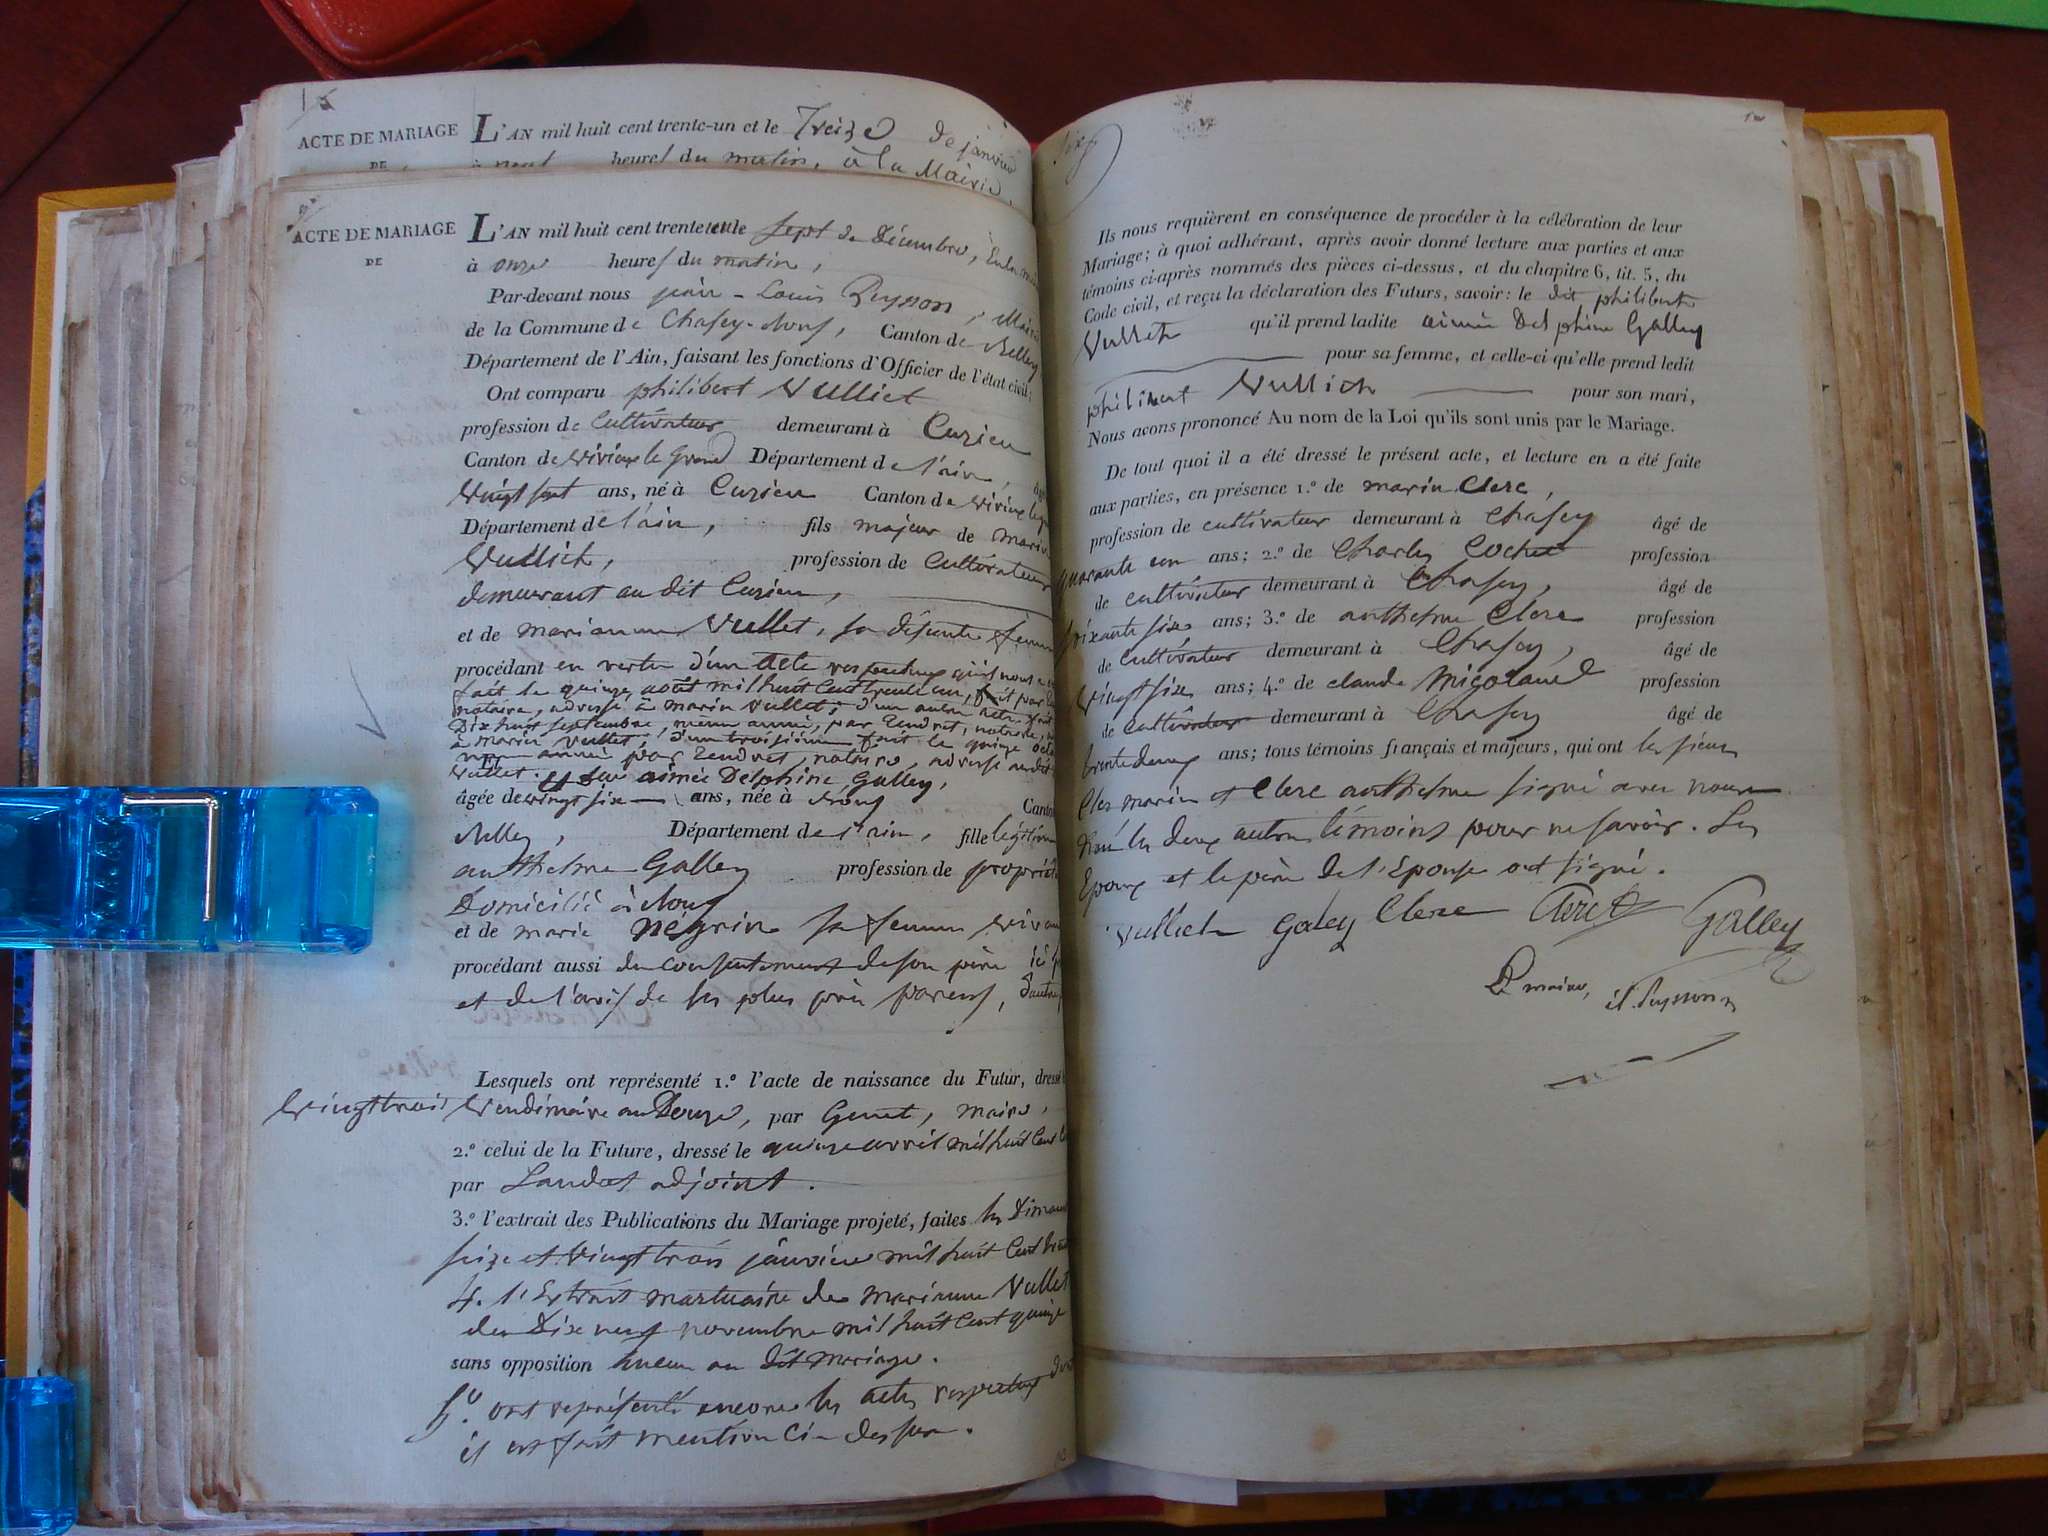 ACTE DE MARIAGE L'AN mil huit cent trente-un et le Treize de janvier
DE heures du matin, à la Mairie
ACTE DE MARIAGE L'AN mil huit cent trente un le sept de Décembre,
DE
à onze heures du matin,
Par-devant nous jean-Louis Peysson, Maire
de la Commune de Chasey-, Canton de Belley
Département de l'Ain, faisant les fonctions d'Officier de l'état civil:
Ont comparu philibert Vulliet
profession de Cultivateur demeurant à Cuzieu
Canton de virieux le Grand Département de l'ain,
Vingt huit ans, né à Cuzieu Canton de virieux
Département de l'ain, fils majeur de marin
Vullich, profession de Cultivateur
demeurant au dit Cuzieu,
et de marianne Vullet, sa défunte femme
procédant en vertu d'un acte respectueux
fait le quinze août mil huit Cent trente un, fait par
notaire, adressé à marin Vullet; d'un autre acte fait
Dix huit septembre, même année, par Tendret, notaire,
à marin Vullet, d'un troisième fait le quinze
même année par Tendret, notaire, adressé audit
Vullet. aimée Delphine Galley,
âgée de vingt six ans, née à Canton
Belley, Département de l'ain, fille légitime
anthelme Galley profession de propriét
Domicilié à
et de marie négrin sa femme vivan
procédant aussi du consentement de son père
et de l'avis de ses plus près parens, d'autre
Lesquels ont représenté 1.º l'acte de naissance du Futur, dressé
vingt trois Vendimaire an Douze, par Genet, maire,
2.º celui de la Future, dressé le quinze avril mil huit Cent
par Landot adjoint.
3.º l'extrait des Publications du Mariage projeté, faites les Diman
seize et vingt trois janvier mil huit Cent
4. l'Extrait mortuaire de marianne Vullet
du Dix neuf novembre mil huit Cent quinze
sans opposition aucune au dit mariage.
5º. ont représenté encore les actes respectueux dont
il est fait mention Ci-dessus.
Ils nous requièrent en conséquence de procéder à la célébration de leur
Mariage; à quoi adhérant, après avoir donné lecture aux parties et aux
témoins ci-après nommés des pièces ci-dessus, et du chapitre 6, tit. 5, du
Code civil, et reçu la déclaration des Futurs, savoir: le dit philibert
Vullich qu'il prend ladite aimée Delphine Galley
pour sa femme, et celle-ci qu'elle prend ledit
philibert Vullich pour son mari,
Nous avons prononcé Au nom de la Loi qu'ils sont unis par le Mariage.
De tout quoi il a été dressé le présent acte, et lecture en a été faite
aux parties, en présence 1.º de marin Clerc,
profession de cultivateur demeurant à Chasey âgé de
quarante un ans; 2.º de Charles Cochet profession
de cultivateur demeurant à Chasey, âgé de
soixante six ans; 3.º de anthelme Clerc profession
de cultivateur demeurant à Chasey, âgé de
vingt six ans; 4.º de claude profession
de cultivateur demeurant à Chasey âgé de
trente deux ans; tous témoins français et majeurs, qui ont les sieurs
Clerc marin et Clerc anthelme signé avec nous
non les deux autres témoins pour ne savoir. Les
Epoux et le père de l'Epouse ont signé.
Vullich Galey Clerc Clerc Galley
Le maire, Peysson